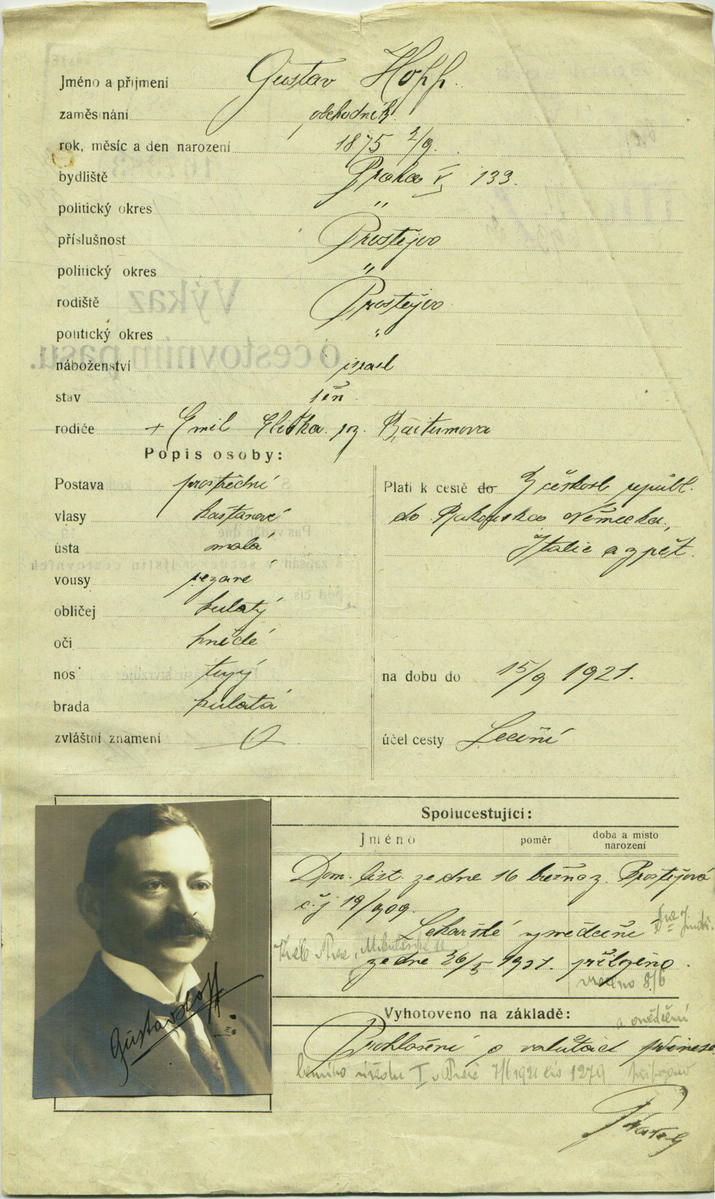 Jméno a přijmení Gustav Hoff.
zaměstnání obchodník
rok, měsíc a den narození 1875 2/9.
bydliště Praha V, 133.
politický okres "
příslušnost Prostějov
politický okres "
rodiště Prostějov
politický okres "
náboženství israel
stav žen
rodiče + Emil
Popis osoby:
Postava prostřední
vlasy kaštanové
ústa malá
vousy
obličej kulatý
oči hnědé
nos tupý
brada kulatá
zvláštní znamení 0
Platí k cestě do Z českosl republ.
do Rakouska Německa,
Italie a zpět.
na dobu do 15/9 1921.
účel cesty Léčení
Spolucestující:
Jméno poměr doba a místo narození
Dom. list. ze dne 16 března z. Prostějova
č.j 19/909.
Lékařské vysvědčení
ze dne 26/5 1921. přiloženo
Vyhotoveno na základě:
Prohlášení o valutách
I v Praze 7/6 1921 čís 1279 připojeno
Gustav Hoff
Výkaz
o cestovním pasu.